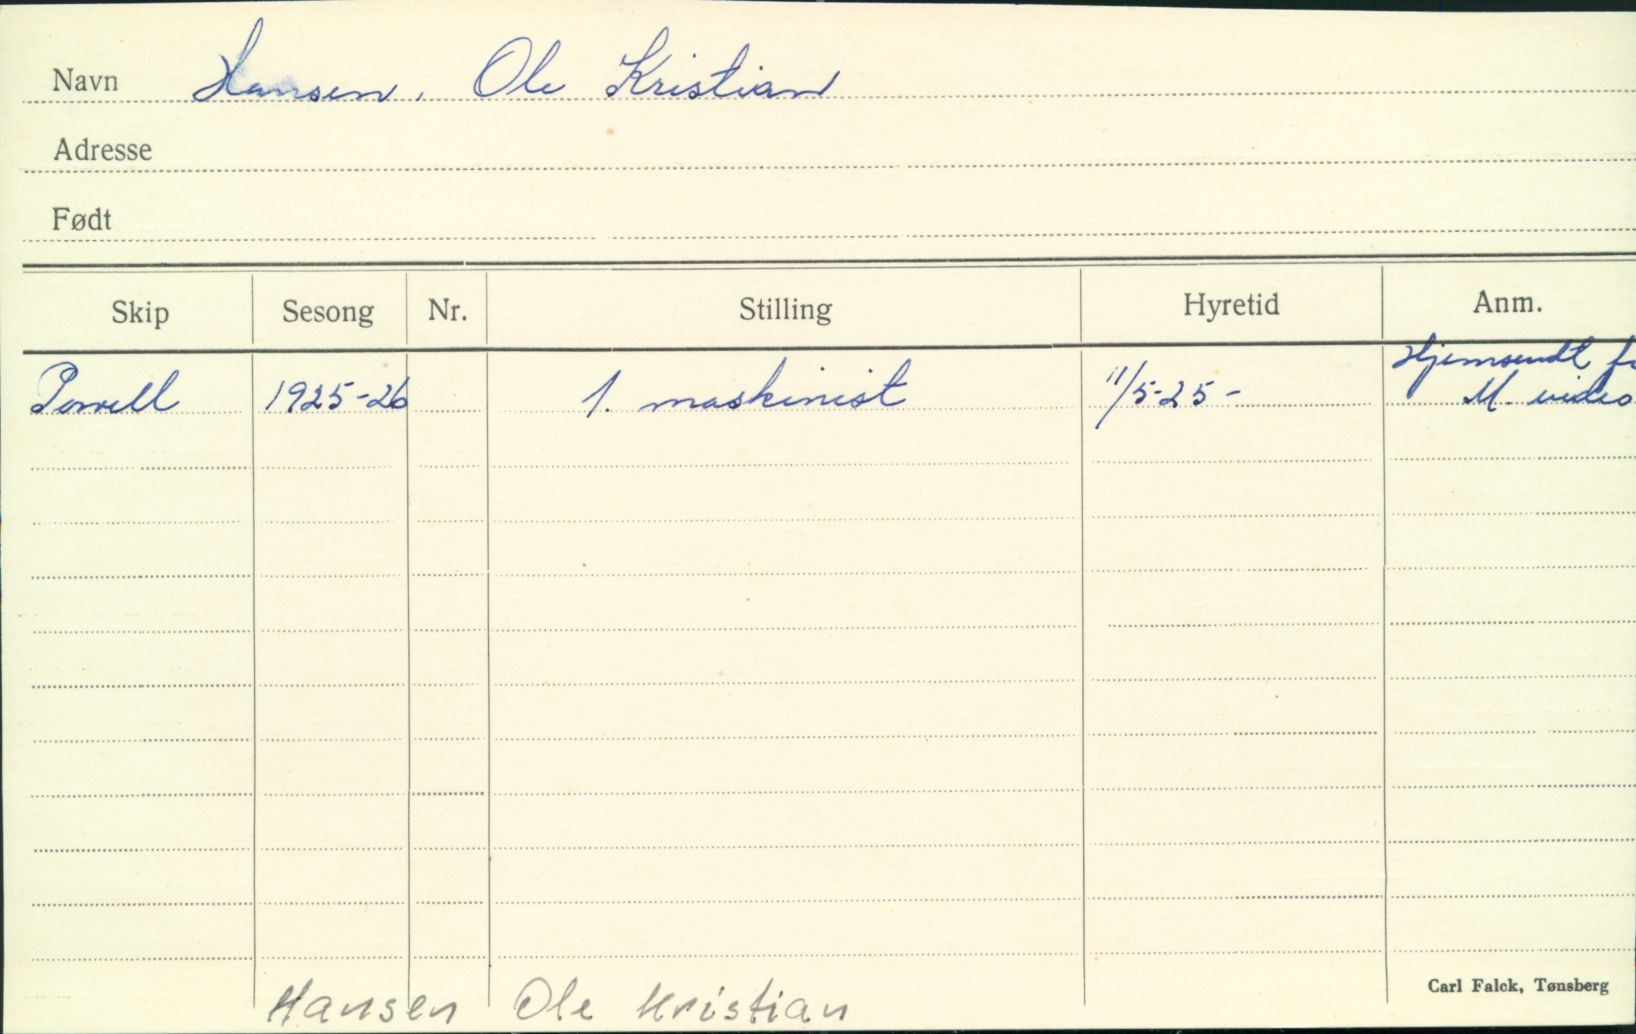 Navn Hansen, Ole Kristian
Adresse
Født
Skip Sesong Nr. Stilling Hyretid Anm.
Hjemsendt fr
Powell 1925-26 1. maskinist 11/5-25- M. video
Carl Falck, Tønsberg
Hansen Ole Kristian